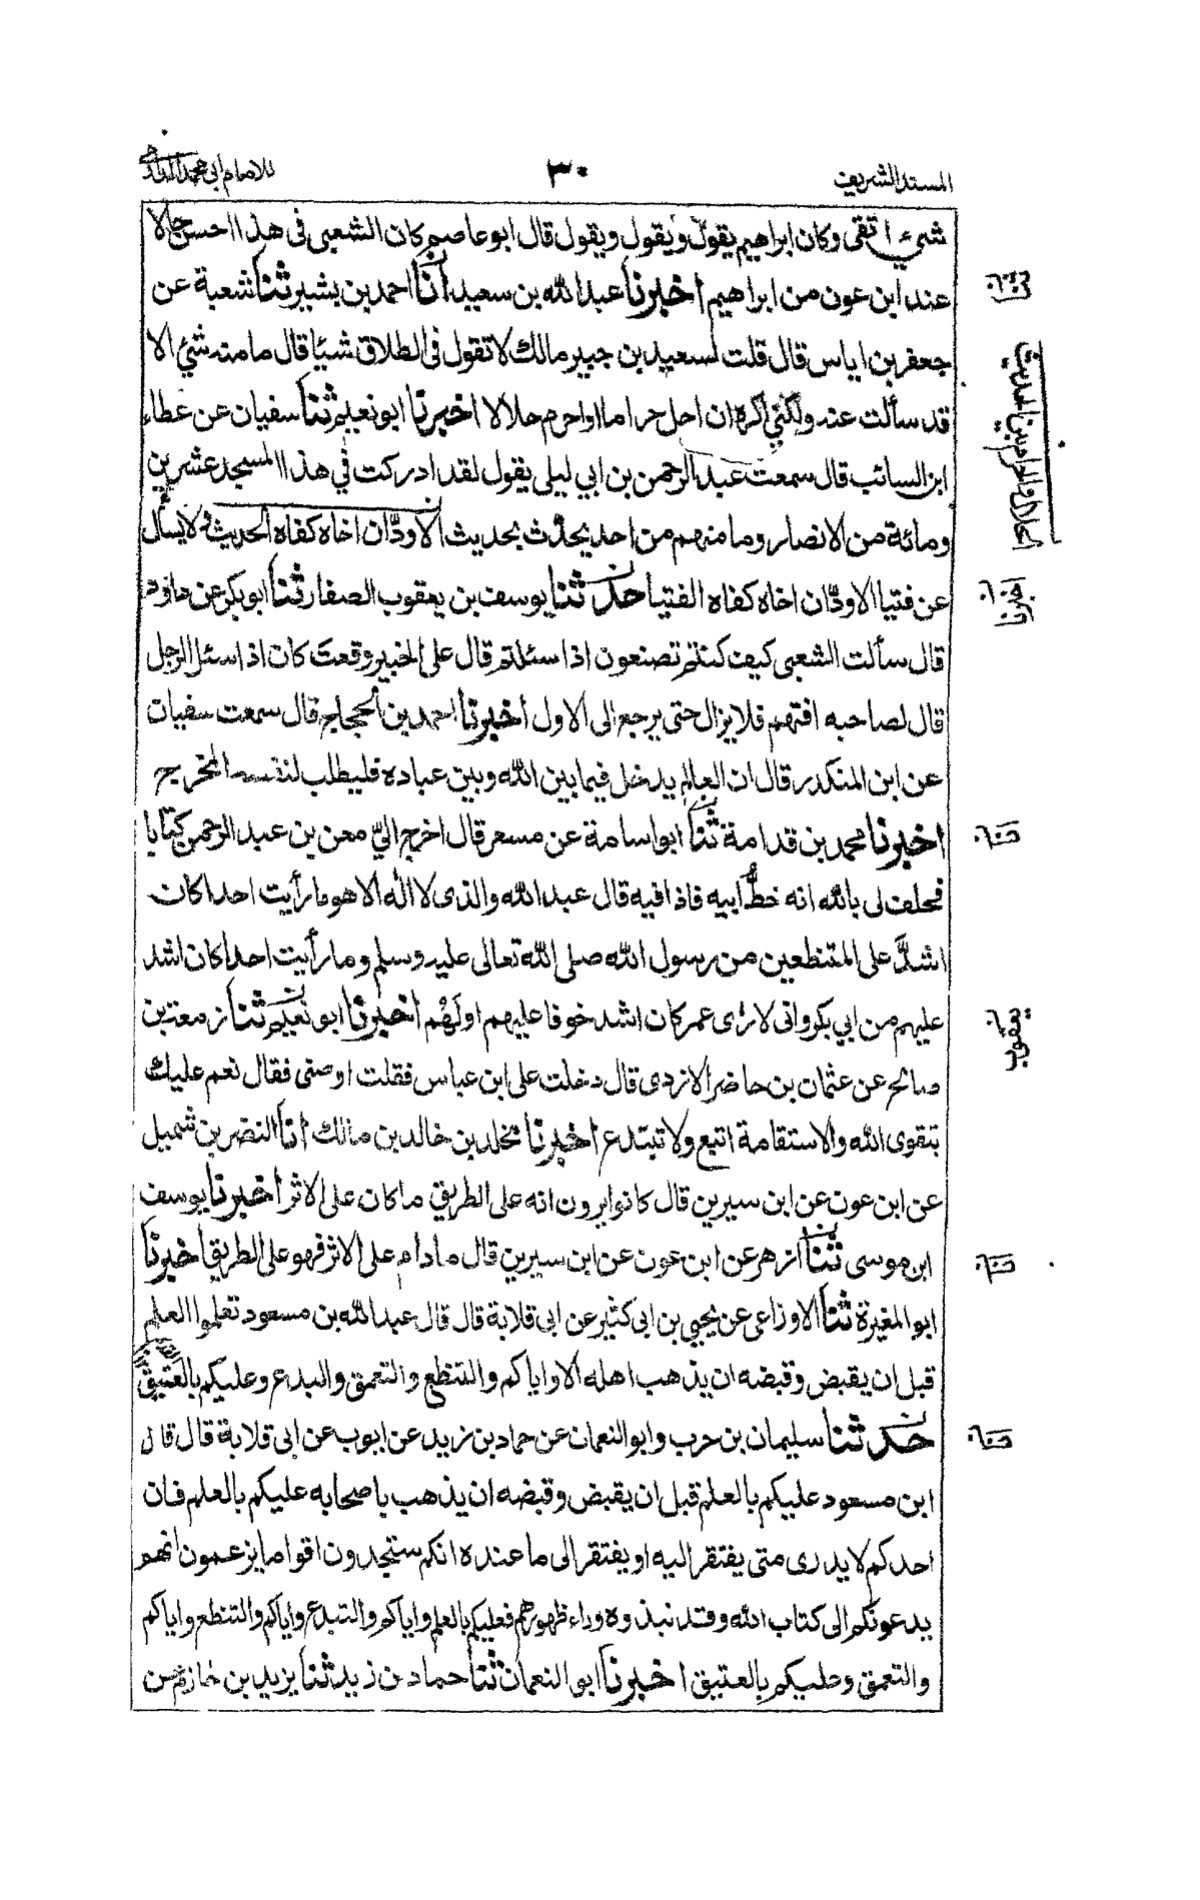 المسند الشريف
٣٠
للامام ابى محمد الدارمى
شيء اتقى وكان ابراهيم يقول ويقول ويقول قال ابو عاصم كان الشعبى فى هذا احسن حالا
عند ابن عون من ابراهيم اخبرنا عبد الله بن سعيد انا احمد بن بشير ثنا شعبة عن
جعفر بن اياس قال قلت لسعيد بن جبير مالك لا تقول فى الطلاق شيئا قال ما منه شئ الا
قد سألت عنه ولكني اكره ان احل حراما او احرم حلالا اخبرنا ابو نعيم ثنا سفيان عن عطاء
ابن السائب قال سمعت عبد الرحمن بن ابي ليلى يقول لقد ادركت في هذا المسجد عشرين
ومائة من الانصار وما منهم من احد يحدّث بحديث الا ودّ ان اخاه كفاه الحديث ولا يسأل
عن فتيا الا ودّ ان اخاه كفاه الفتيا حدثنا يوسف بن يعقوب الصفار ثنا ابو بكر عن داود
قال سألت الشعبى كيف كنتم تصنعون اذا سئلتم قال على الخبير وقعت كان اذا سئل الرجل
قال لصاحبه افتهم فلا يزال حتى يرجع الى الاول اخبرنا احمد بن الحجاج قال سمعت سفيان
عن ابن المنكدر قال ان العالم يدخل فيما بين الله وبين عباده فليطلب لنفسه المخرج
اخبرنا محمد بن قدامة ثنا ابو اسامة عن مسعر قال اخرج الىّ معن بن عبد الرحمن كتابا
فحلف لى بالله انه خطُّ ابيه فاذا فيه قال عبد الله والذى لا اله الا هو ما رأيت احدا كان
اشدَّ على المتنطعين من رسول الله صلى الله تعالى عليه وسلم وما رأيت احدا كان اشد
عليهم من ابي بكر وانى لارى عمر كان اشد خوفا عليهم او لَهُم اخبرنا ابو نعيم ثنا زمعة بن
صالح عن عثمان بن حاضر الازدى قال دخلت على ابن عباس فقلت اوصنى فقال نعم عليك
بتقوى الله والاستقامة اتبع ولا تبتدع اخبرنا مخلد بن خالد بن مالك انا النضر بن شميل
عن ابن عون عن ابن سيرين قال كانوا يرون انه على الطريق ما كان على الاثر اخبرنا يوسف
ابن موسى ثنا ازهر عن ابن عون عن ابن سيرين قال ما دام على الاثر فهو على الطريق اخبرنا
ابو المغيرة ثنا الاوزاعى عن يحيى بن ابى كثير عن ابى قلابة قال قال عبد الله بن مسعود تعلموا العلم
قبل ان يقبض وقبضه ان يذهب اهله الا واياكم والتنطع والتعمق والبدع وعليكم بالعتيق
حدثنا سليمان بن حرب وابو النعمان عن حماد بن زيد عن ايوب عن ابى قلابة قال قال
ابن مسعود عليكم بالعلم قبل ان يقبض وقبضه ان يذهب باصحابه عليكم بالعلم فان
احدكم لا يدرى متى يفتقر اليه او يفتقر الى ما عنده انكم ستجدون اقواما يزعمون انهم
يدعونكم الى كتاب الله وقد نبذوه وراء ظهورهم فعليكم بالعلم واياكم والتبدع واياكم والتنطع واياكم
والتعمق وعليكم بالعتيق اخبرنا ابو النعمان ثنا حماد بن زيد ثنا يزيد بن حازم عن
الحلال والحرام بين الحديث
اخبرنا
يعقوب